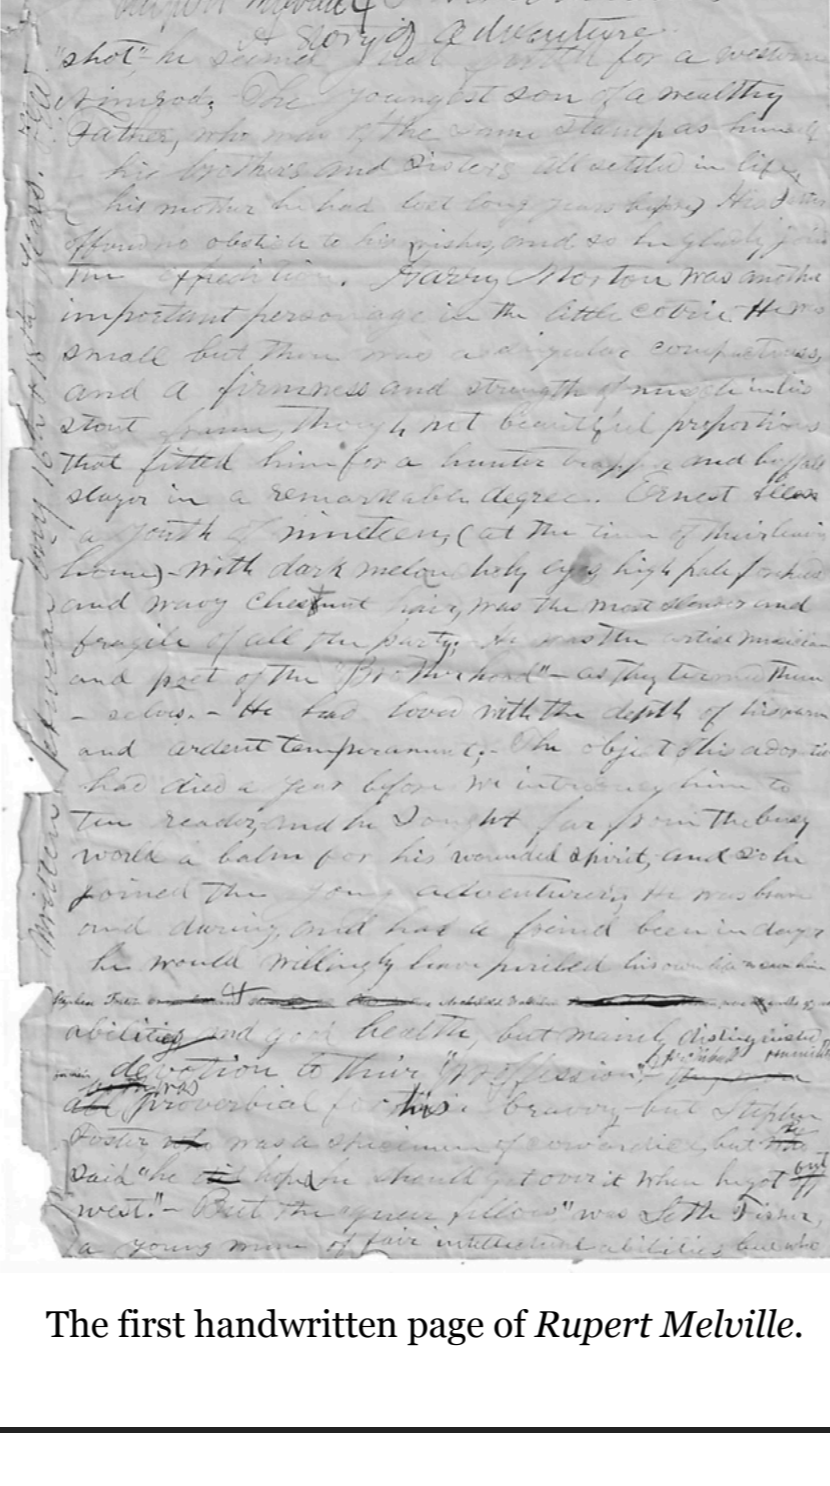 Rupert Melville
A Story of Adventure
"shot" he seemed just for a western
Nimrod. The youngest son of a wealthy
Father, who was of the same stamp as himself
his brothers and sisters all settled in life,
his mother he had lost long years before,
offered no obstacle to his wishes, and so he gladly
the expedition. Harry Morton was another
important personage in the little coterie He was
small but there was a singular compactness,
and a firmness and strength of muscle in his
stout frame, though not beautiful proportions
that fitted him for a hunter trapper and buffalo
slayer in a remarkable degree. Ernest
a youth of nineteen, (at the time of their leaving
home) - with dark melancholy eyes high pale forehead
and wavy chestnut hair, was the most slender and
fragile of all the party. He was the artist musician
and poet of the "Brotherhood" - as they termed them
- selves. - He had loved with the depth of his own
and ardent temperament; - The object of his adoration
had died a year before we introduce him to
the reader, and he sought far from the busy
world a balm for his wounded spirit, and so he
joined the young adventurers. He was brave
and daring, and had a friend been in danger
he would willingly have periled his own
abilities and good health, but mainly distinguished
devotion to their "profession"
was
all proverbial for his bravery - but Stephen
Foster was a specimen of cowardice, but he
said "he hoped he should get over it when he got out
west." - But the "queer fellow" was Seth
a young man of fair intellectual abilities but who
Written between my 16th & 18th years.
The first handwritten page of Rupert Melville.